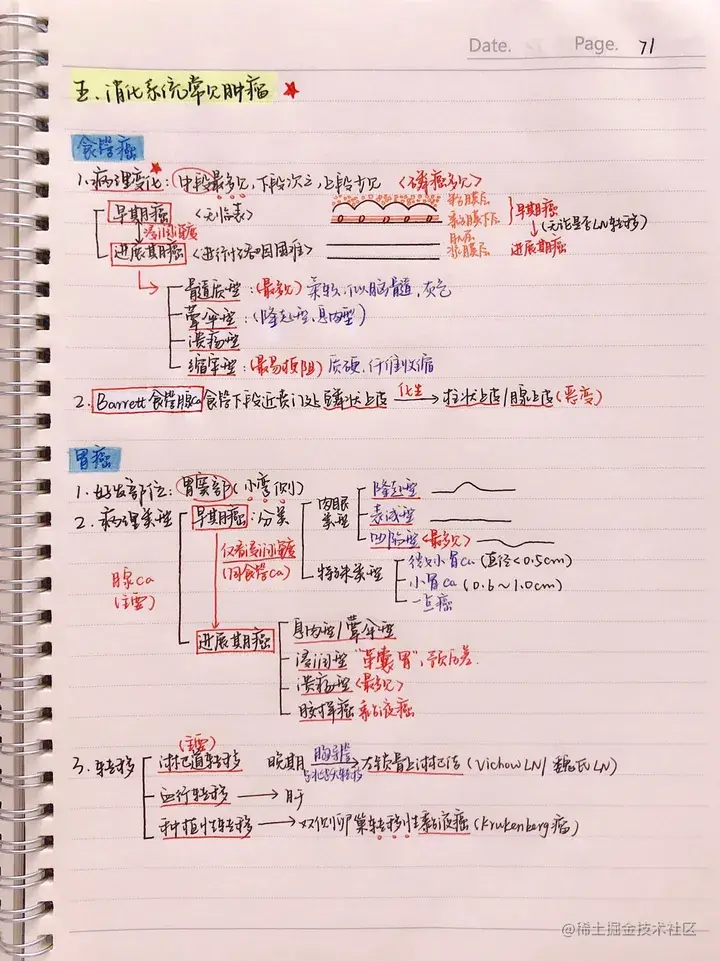 Date. Page. 71
五、消化系统常见肿瘤 ★
食管癌
1.病理变化:中段最多见,下段次之,上段少见 <鳞癌多见>
早期癌 <无临表>
浸润深度
进展期癌 <进行性吞咽困难>
黏膜层
黏膜下层
肌层
浆膜层
早期癌
↓(无论是否LN转移)
进展期癌
髓质型:(最多见)柔软,似脑髓,灰色
蕈伞型:(隆起型,息肉型)
溃疡型
缩窄型:(最易梗阻)质硬,纤维收缩
2.Barrett食管腺Ca 食管下段近贲门处鳞状上皮 化生→ 柱状上皮/腺上皮(恶变)
胃癌
1.好发部位:胃窦部(小弯侧)
2.病理类型
腺Ca
(主要)
早期癌:分类
仅看浸润深度
(同食管Ca)
肉眼类型
隆起型
表浅型
凹陷型<最多见>
特殊类型
微小胃Ca(直径<0.5cm)
小胃Ca(0.6~1.0cm)
一点癌
进展期癌
息肉型/蕈伞型
浸润型"革囊胃",预后差.
溃疡型<最多见>
胶样癌 黏液癌
3.转移
(主要)
淋巴道转移 晚期 胸导管→ 左锁骨上淋巴结(Vichow LN/魏氏LN)
血行转移→肝
种植性转移→双侧卵巢转移性黏液癌(Krukenberg瘤)
@稀土掘金技术社区